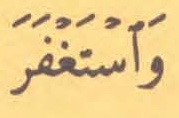 وَٱسْتَغْفَرَ